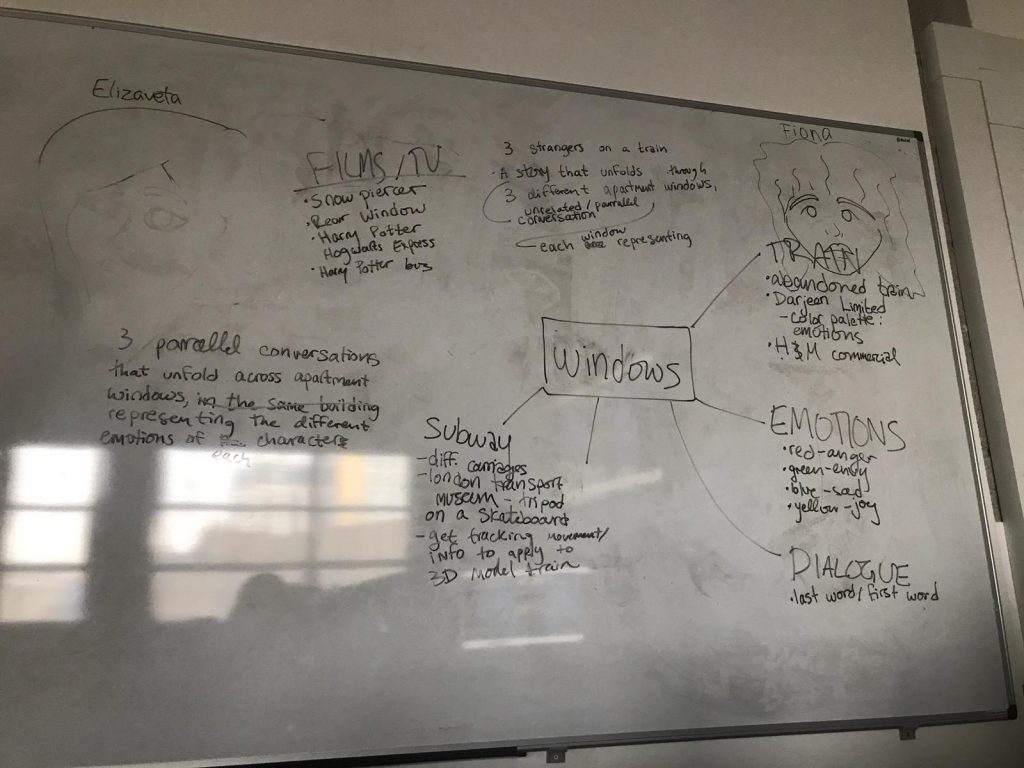 Elizaveta
FILMS/TV
• Snow piercer
• Rear Window
• Harry Potter
Hogwarts Express
• Harry Potter bus
3 strangers on a train
• A story that unfolds through
3 different apartment windows,
unrelated/parrallel
conversation
each window representing
Fiona
TRAIN
• abandoned train
• Darjean Limited
- Color palette:
emotions
• H&M commercial
windows
3 parrallel conversations
that unfold across apartment
windows, in the same building
representing the different
emotions of characters
each
Subway
- diff. carriages
- london transport
museum - tripod
on a skateboard
- get tracking movement/
INFO to apply to
3D model train
EMOTIONS
• red-anger
• green-envy
• blue-sad
• yellow-joy
DIALOGUE
• last word/first word